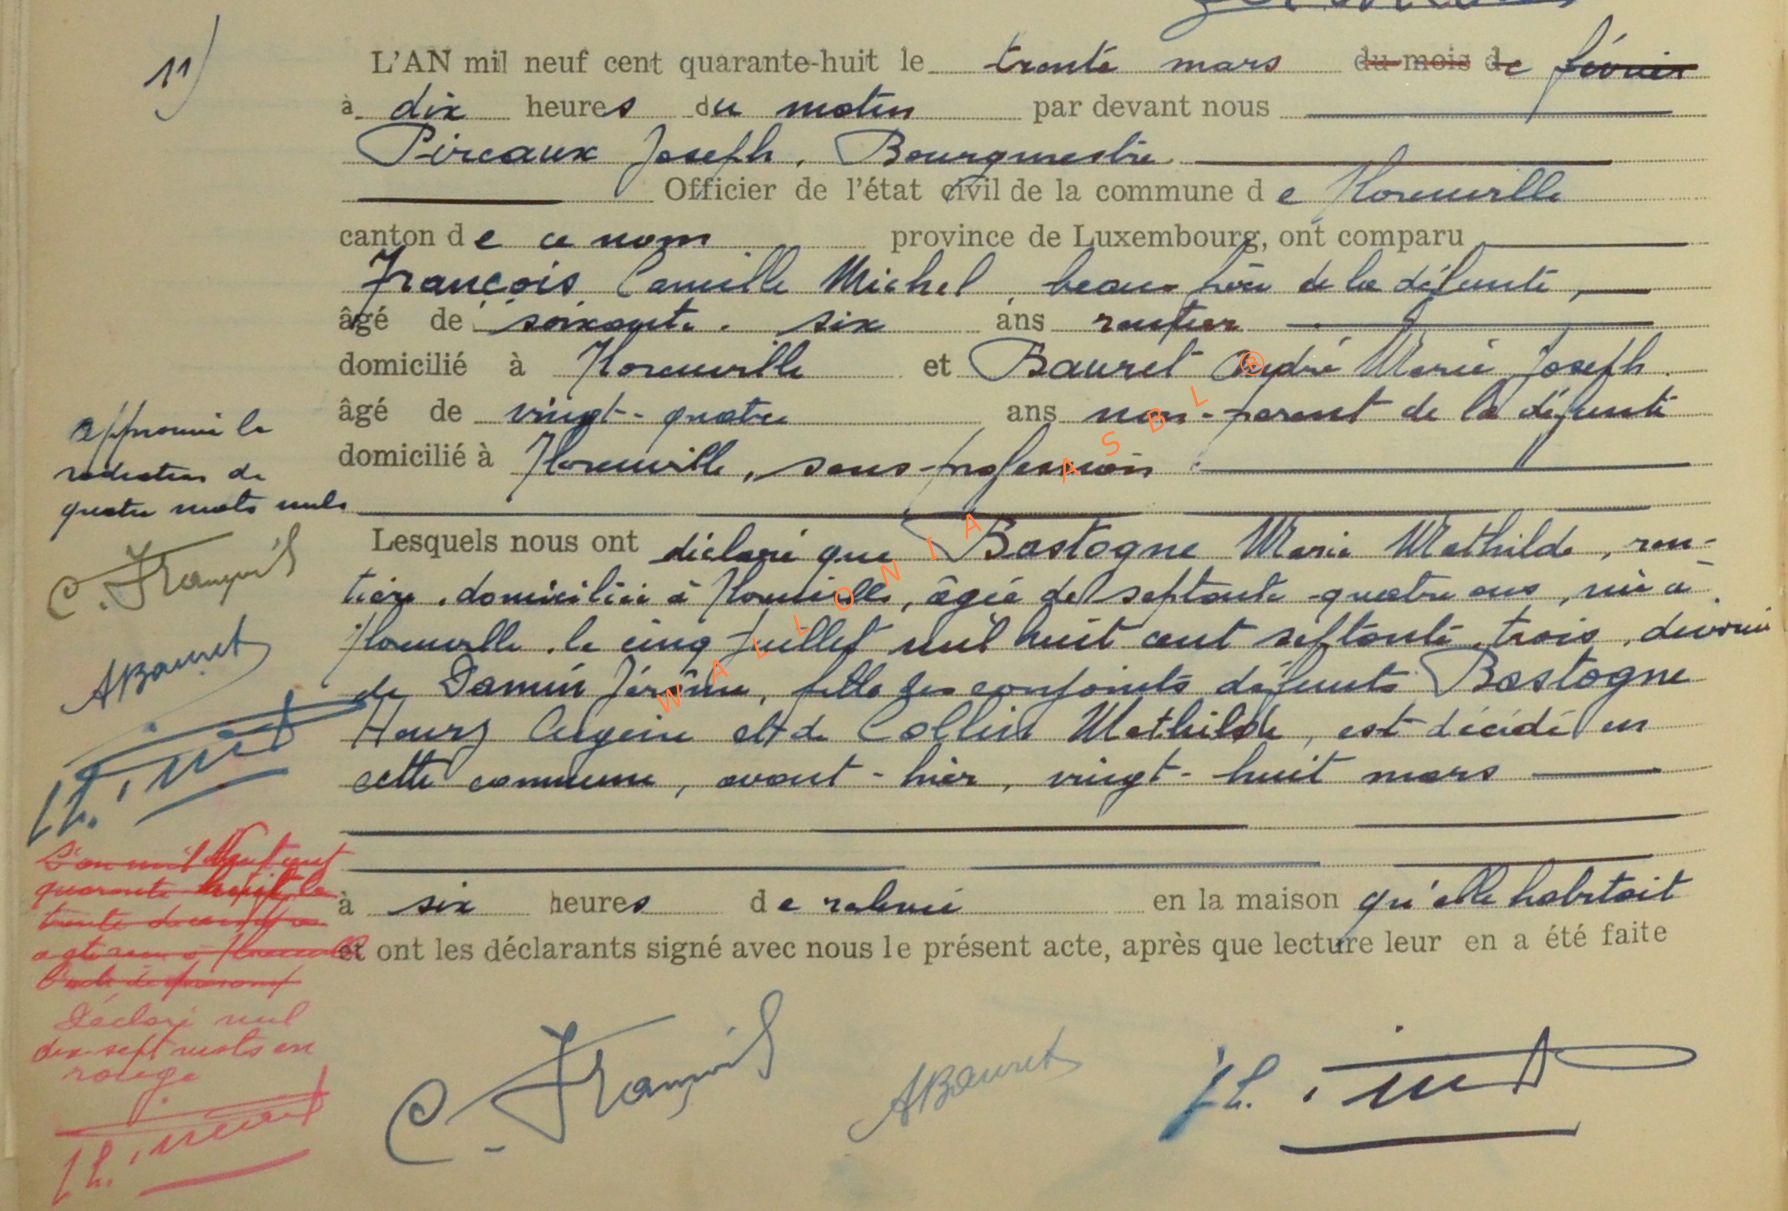 11)
L'AN mil neuf cent quarante-huit le trente mars du mois de février
à dix heures du matin par devant nous
Pireaux Joseph, Bourgmestre
Officier de l'état civil de la commune de Florenville
canton de ce nom province de Luxembourg, ont comparu
François Camille Michel, beau frère de la défunte,
âgé de soixante-six ans rentier
domicilié à Florenville et Bauret André Marie Joseph.
âgé de vingt-quatre ans non-parent de la défunte
domicilié à Florenville, sans profession
Lesquels nous ont déclaré que Bastogne Marie Mathilde, ren-
tière, domiciliée à Florenville, âgée de septante-quatre ans, née à
Florenville, le cinq Juillet mil huit cent septante trois, divorcée
de Damin Jérôme, fille des conjoints défunts Bastogne
Henry Eugène et de Collin Mathilde, est décédé en
cette commune, avant-hier, vingt-huit mars
à six heures de relevée en la maison qu'elle habitait
et ont les déclarants signé avec nous le présent acte, après que lecture leur en a été faite
C. François ABauret Jh.
approuvé la
radiation de
quatre mots nuls
C. François
ABauret
Jh.
L'an mil neuf cent
quarante huit le
trente
Déclaré nul
dix-sept mots en
rouge
Jh.
WALLONIA ASBL ®